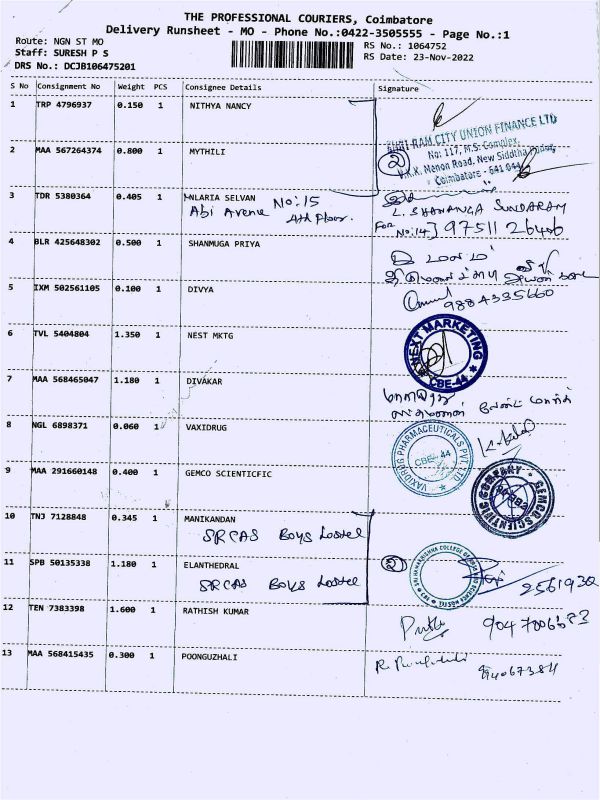 THE PROFESSIONAL COURIERS, Coimbatore
Delivery Runsheet - MO - Phone No.:0422-3505555 - Page No.:1
Route: NGN ST MO
RS No.: 1064752
Staff: SURESH P S
RS Date: 23-Nov-2022
DRS No.: DCJB106475201
S No Consignment No Weight PCS Consignee Details Signature
1 TRP 4796937 0.150 1 NITHYA NANCY
SHRI RAM CITY UNION FINANCE LTD
No: 117, M.S. Complex,
2 MAA 567264374 0.800 1 MYTHILI
2
V.K.K. Menon Road, New Siddha Pudur,
Coimbatore - 641 044
3 TDR 5380364 0.405 1 NLARIA SELVAN No:15
Abi Avenue 4th Floor.
L. SHANANGA SUNDARAM
For No:14] 97511 26406
4 BLR 425648302 0.500 1 SHANMUGA PRIYA
5 IXM 502561105 0.100 1 DIVYA
9884335660
6 TVL 5404804 1.350 1 NEST MKTG
NEXT MARKETING
CBE-44
7 MAA 568465047 1.180 1 DIVAKAR
8 NGL 6898371 0.060 1 VAXIDRUG
VAXIDRUG PHARMACEUTICALS PVT LTD
CBE-44
9 MAA 291660148 0.400 1 GEMCO SCIENTICFIC
GEMCO SCIENTIFIC COMPANY
10 TNJ 7128848 0.345 1 MANIKANDAN
SRCAS Boys Hostel
11 SPB 50135338 1.180 1 ELANTHEDRAL
2
SRCAS Boys Hostel
2561930
12 TEN 7383398 1.600 1 RATHISH KUMAR
13 MAA 568415435 0.300 1 POONGUZHALI